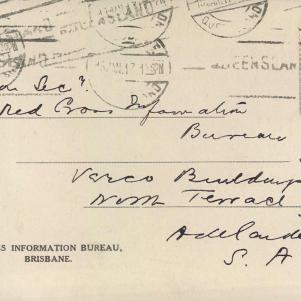 QUEENSLAND
QUEENSLAND
Sec?
Red Cross Information
Bureau
Verco Buildings
North Terrace
Adelaide
S. A
SS INFORMATION BUREAU,
BRISBANE.